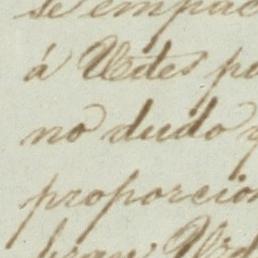 se empac
á Vdes po
no dudo q
proporcion